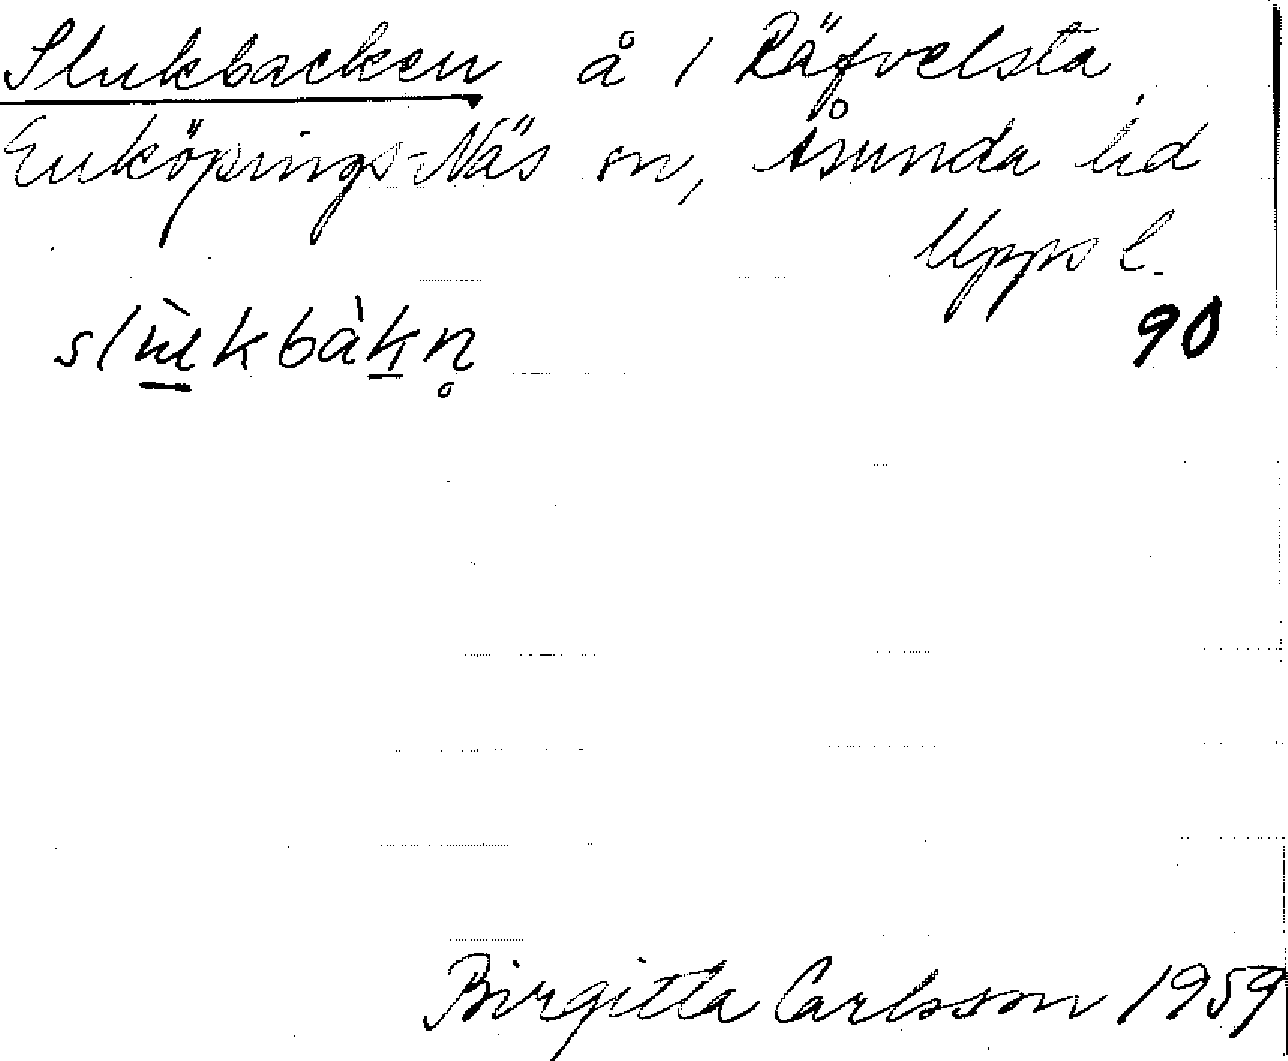 Slukbacken å 1 Räfvelsta,
Enköpings-Näs sn, Åsunda hd
Upps l.
90
Birgitta Carlsson 1959